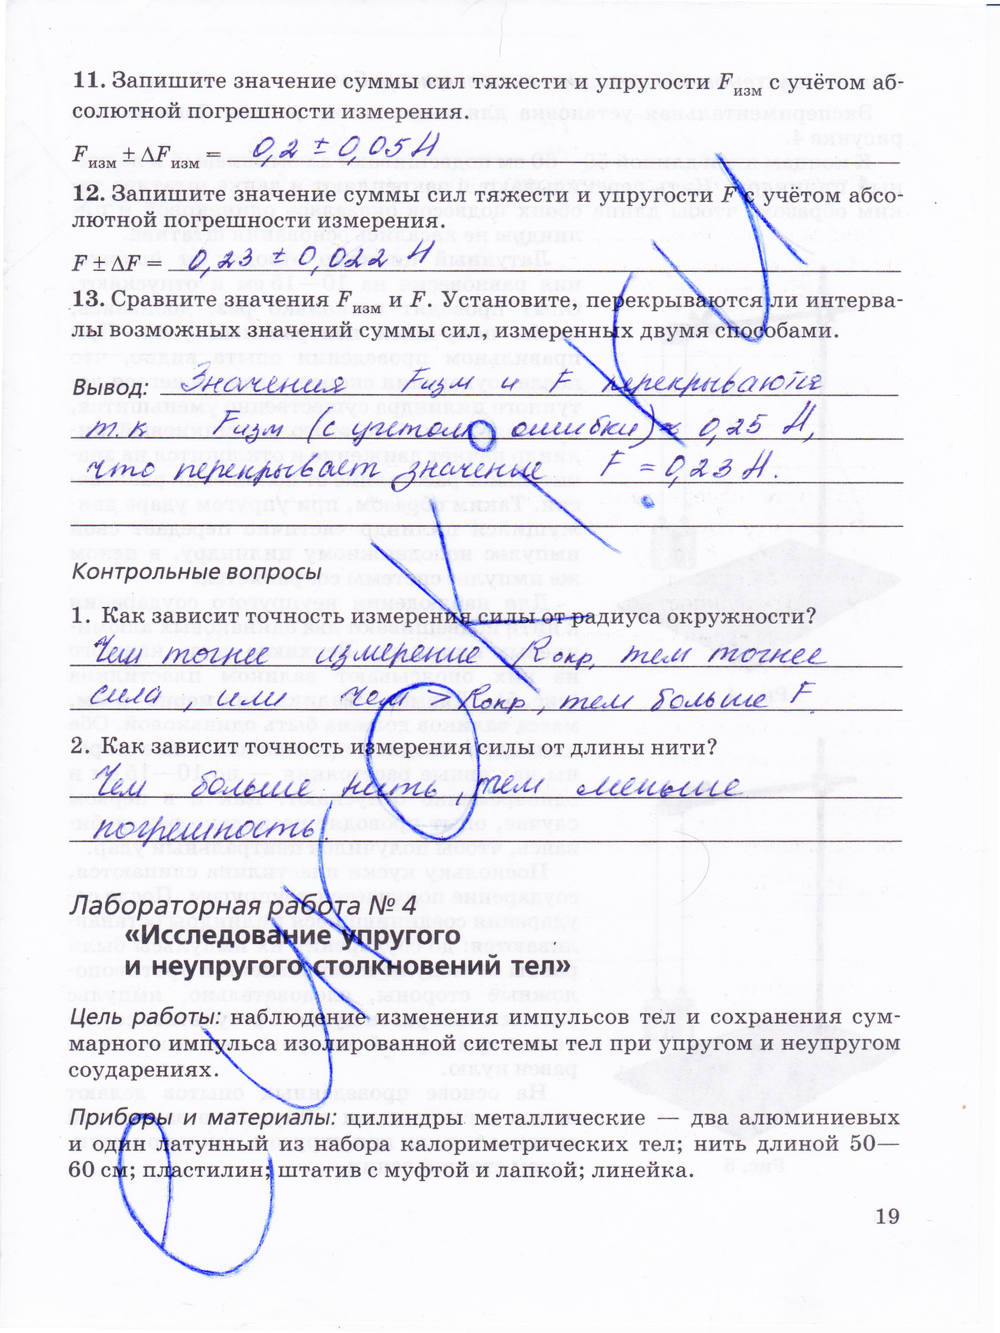 11. Запишите значение суммы сил тяжести и упругости Fизм с учётом аб-
солютной погрешности измерения.
Fизм ± ΔFизм = 0,2 ± 0,05 Н
12. Запишите значение суммы сил тяжести и упругости F с учётом абсо-
лютной погрешности измерения.
F ± ΔF = 0,23 ± 0,022 Н
13. Сравните значения Fизм и F. Установите, перекрываются ли интерва-
лы возможных значений суммы сил, измеренных двумя способами.
Вывод: Значения Fизм и F перекрываются
т.к Fизм (с учетом ошибки) ≈ 0,25 Н,
что перекрывает значение F = 0,23 Н.
Контрольные вопросы
1. Как зависит точность измерения силы от радиуса окружности?
Чем точнее измерение Rокр, тем точнее
сила, или чем > Rокр, тем больше F.
2. Как зависит точность измерения силы от длины нити?
Чем больше нить, тем меньше
погрешность.
Лабораторная работа № 4
«Исследование упругого
и неупругого столкновений тел»
Цель работы: наблюдение изменения импульсов тел и сохранения сум-
марного импульса изолированной системы тел при упругом и неупругом
соударениях.
Приборы и материалы: цилиндры металлические — два алюминиевых
и один латунный из набора калориметрических тел; нить длиной 50—
60 см; пластилин; штатив с муфтой и лапкой; линейка.
19